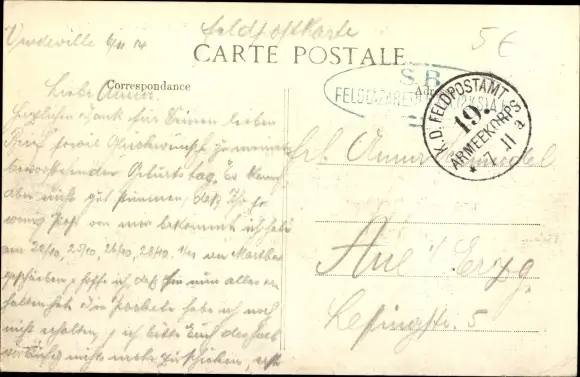 Feldpostkarte
5 €
Verdeville 6/11 14
CARTE POSTALE
Correspondance
Adr
S. B.
FELD
K.D. FELDPOSTAMT
19.
ARMEEKORPS
* 7 11 a
Liebe Anna!
Herzlichen Dank für Deinen lieben
Brief sowie Glückwunsch zu meinem
bevorstehenden Geburtstag. Es kann
aber nicht gut stimmen, daß Ihr so
wenig Post von mir bekommt, ich habe
am 22/10, 25/10, 26/10, 28/10, 1/11 an Martha
geschrieben, hoffe ich daß Ihr nun alles er-
halten habt. Die Pakete habe ich noch
nicht erhalten, ich bitte Euch deshalb
vorläufig nichts mehr zuschicken, erst
Frl. Anna
Aue i/ Erzg.
Lessingstr. 5